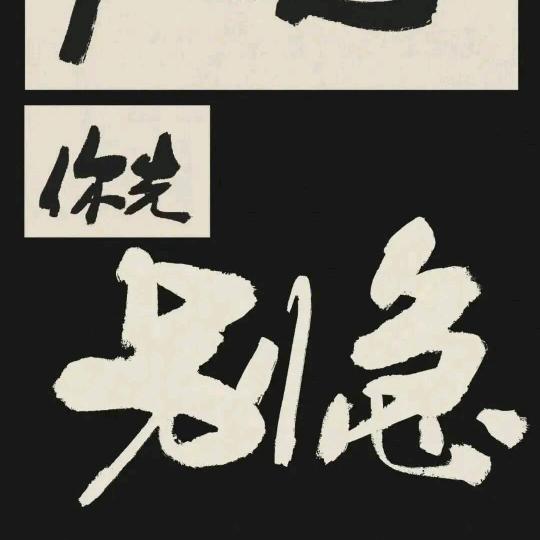 你先
别急